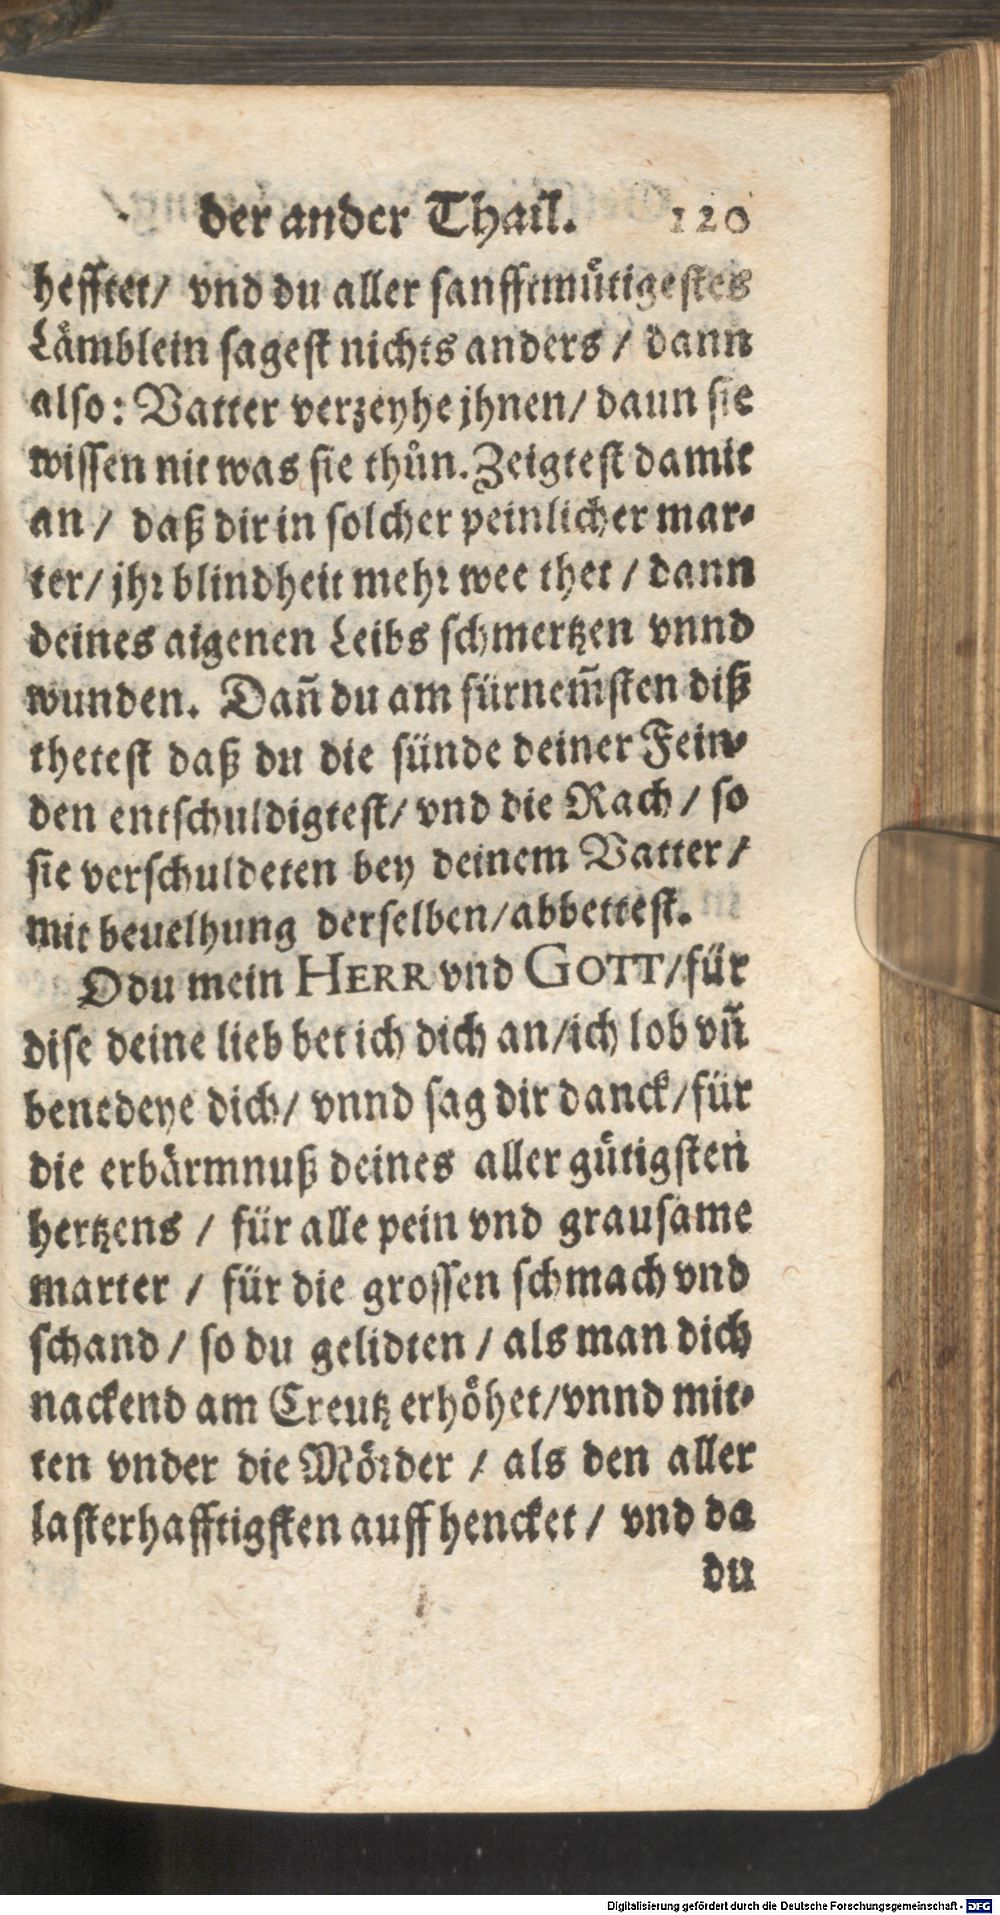 der ander Thail. 120
hefftet/ vnd du aller sanfftmuͤtigestes
Laͤmblein sagest nichts anders / dann
also: Vatter verzeyhe jhnen/ daun sie
wissen nit was sie thuͦn. Zeigtest damit
an / daß dir in solcher peinlicher mar⸗
ter/ jhr blindheit mehr wee thet / dann
deines aigenen Leibs schmertzen vnnd
wunden. Dañ du am fürnem̃sten diß
thetest daß du die sünde deiner Fein⸗
den entschuldigtest/ vnd die Rach / so
sie verschuldeten bey deinem Vatter /
mit beuelhung derselben/ abbettest.
O du mein HERR vnd GOTT/ für
dise deine lieb bet ich dich an/ ich lob vñ
benedeye dich/ vnnd sag dir danck/ für
die erbärmnuß deines aller guͤtigsten
hertzens / für alle pein vnd grausame
marter / für die grossen schmach vnd
schand / so du gelidten / als man dich
nackend am Creutz erhoͤhet/ vnnd mit⸗
ten vnder die Moͤrder / als den aller
lasterhafftigsten auff hencket / vnd da
du
Digitalisierung gefördert durch die Deutsche Forschungsgemeinschaft - DFG